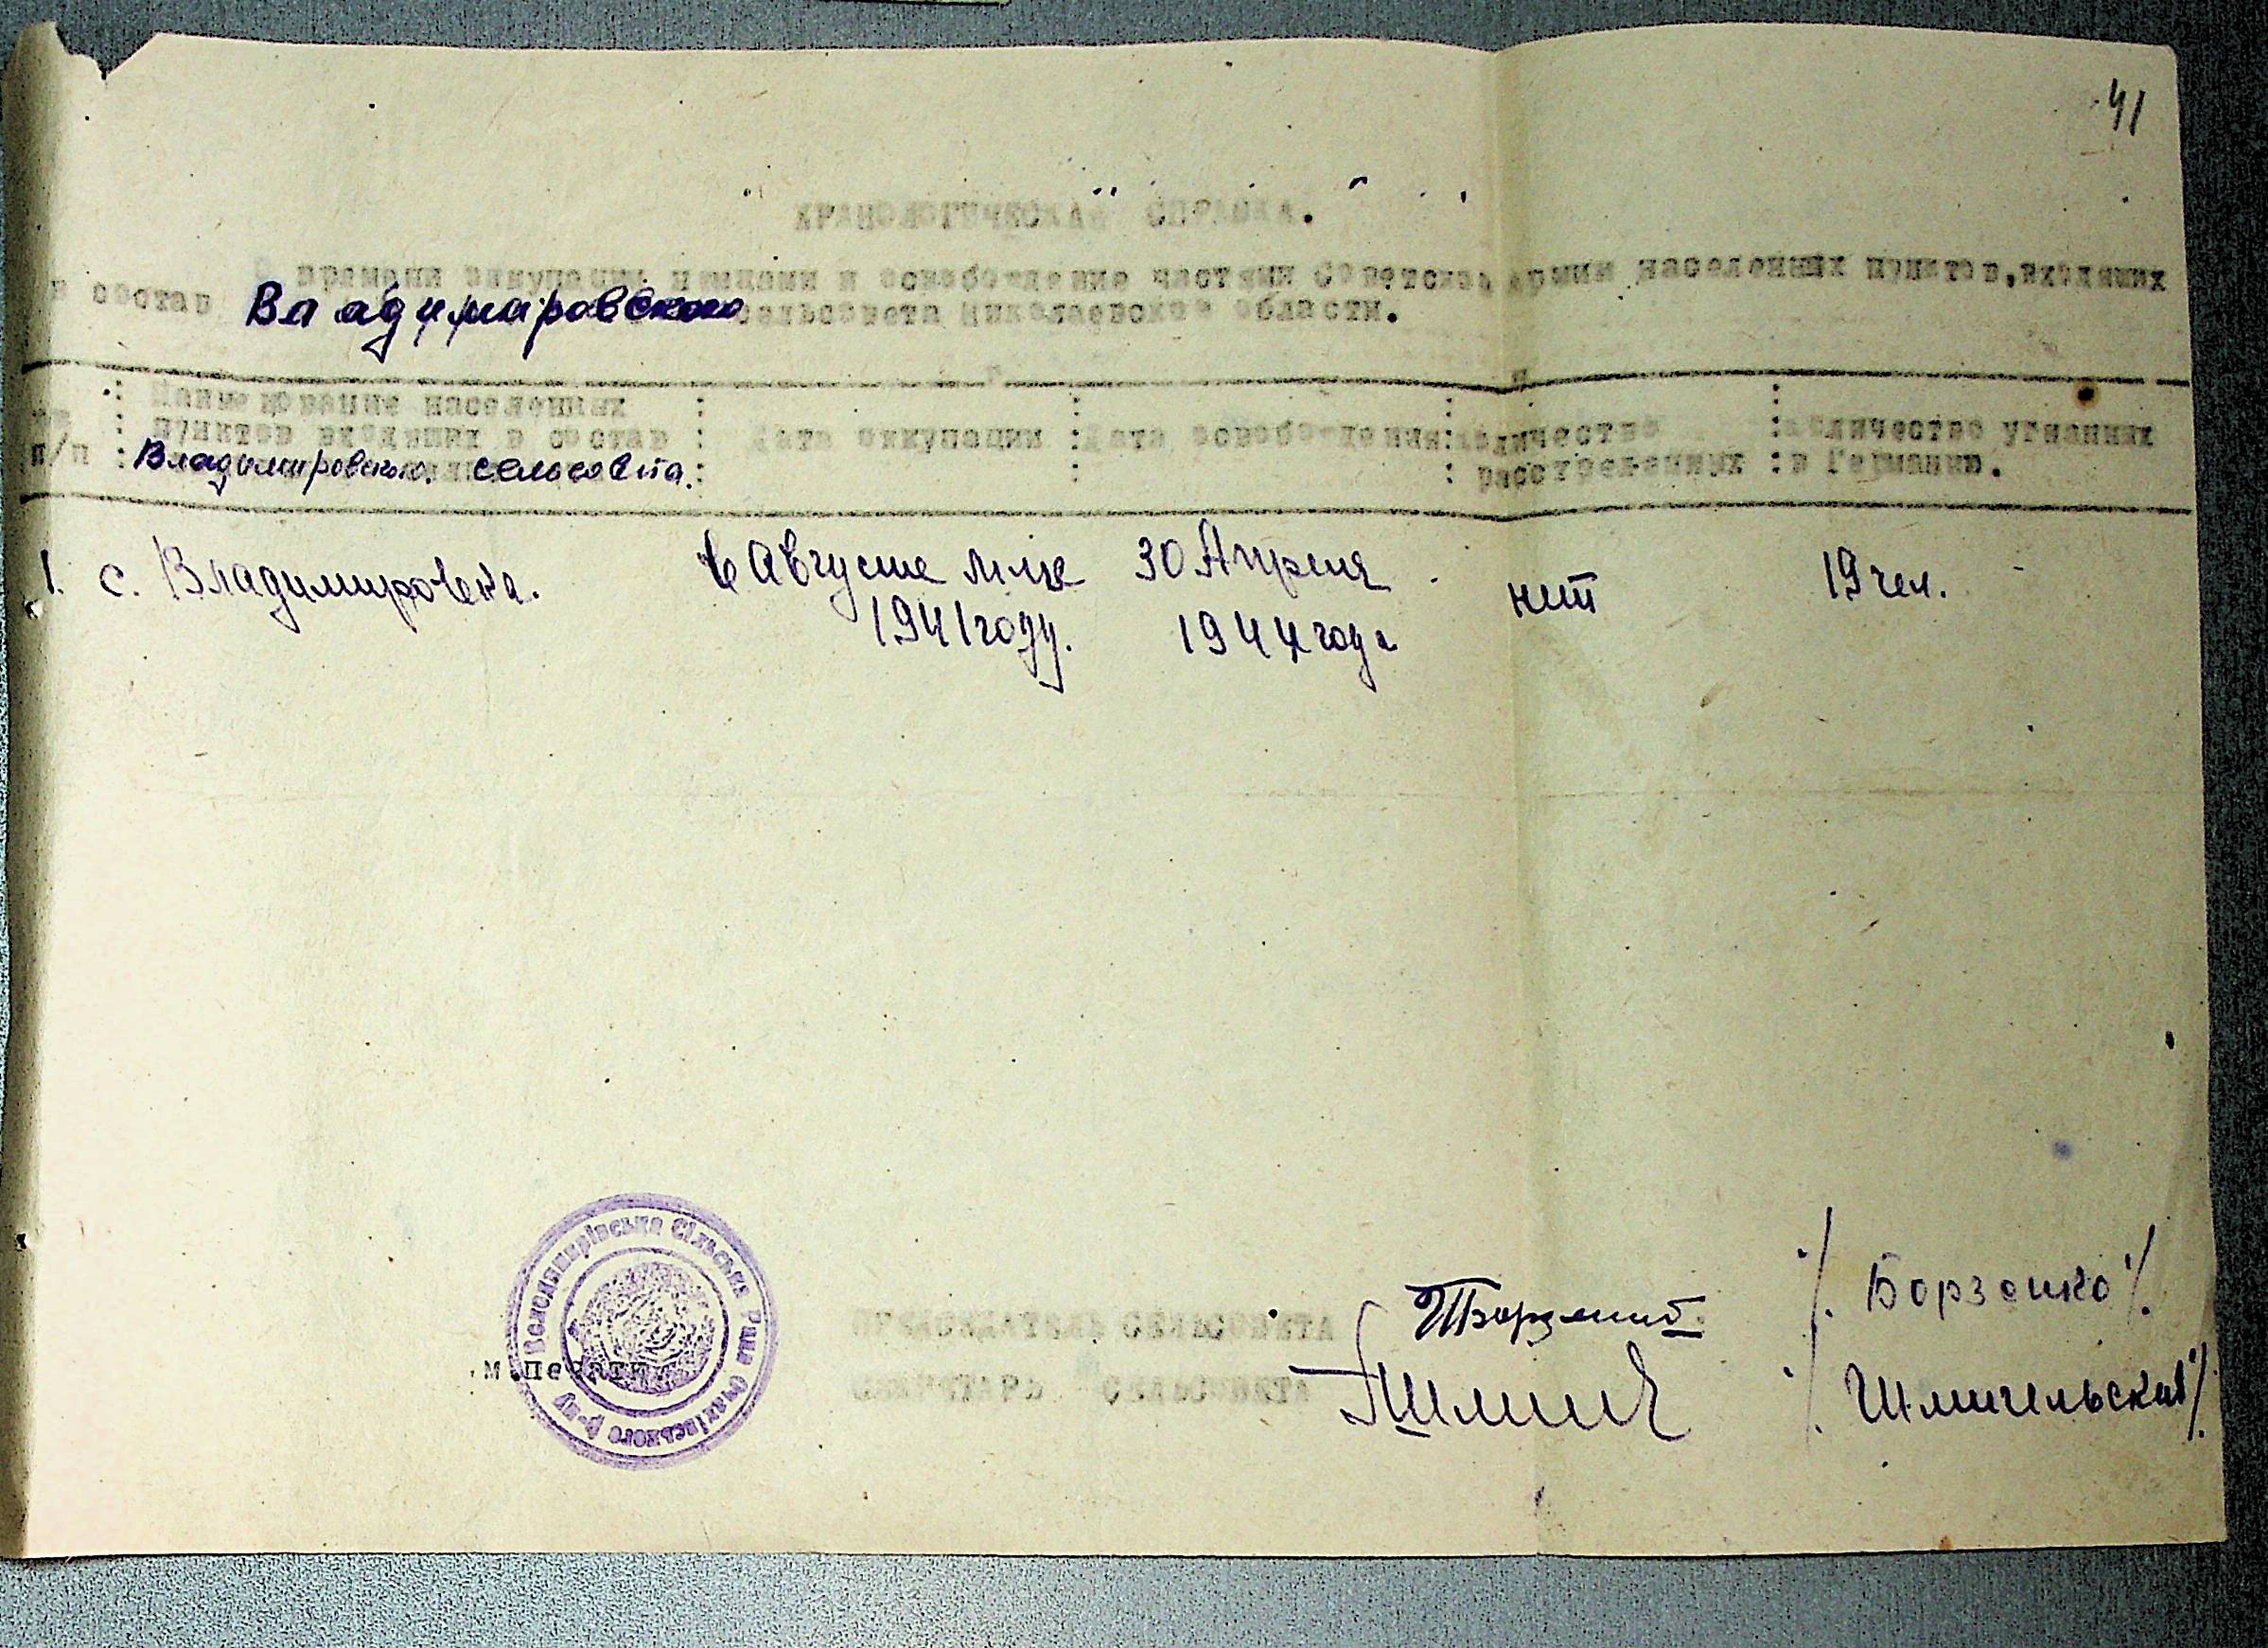 41
"ХРАНОЛОГИЧЕСКАЯ" СПРАВКА.
О времени оккупации немцами и освобождение частями Советской армии населенных пунктов, входящих
в состав Владимировского сельсовета Николаевской области.
№№ п/п : Наименование населенных пунктов входящих в состав Владимировского сельсовета. : Дата оккупации : Дата освобождения : Количество расстрелянных : Количество угнанных в Германию.
1. с. Владимировка. в Августе м-це 30 Апреля нет 19 чел.
1941 году. 1944 года
ПРЕДСЕДАТЕЛЬ СЕЛЬСОВЕТА /. Борзенко /.
м.печати
СЕКРЕТАРЬ СЕЛЬСОВЕТА /. Шмигельский /.
Володимирівська Сільська Рада Очаківського р-ну